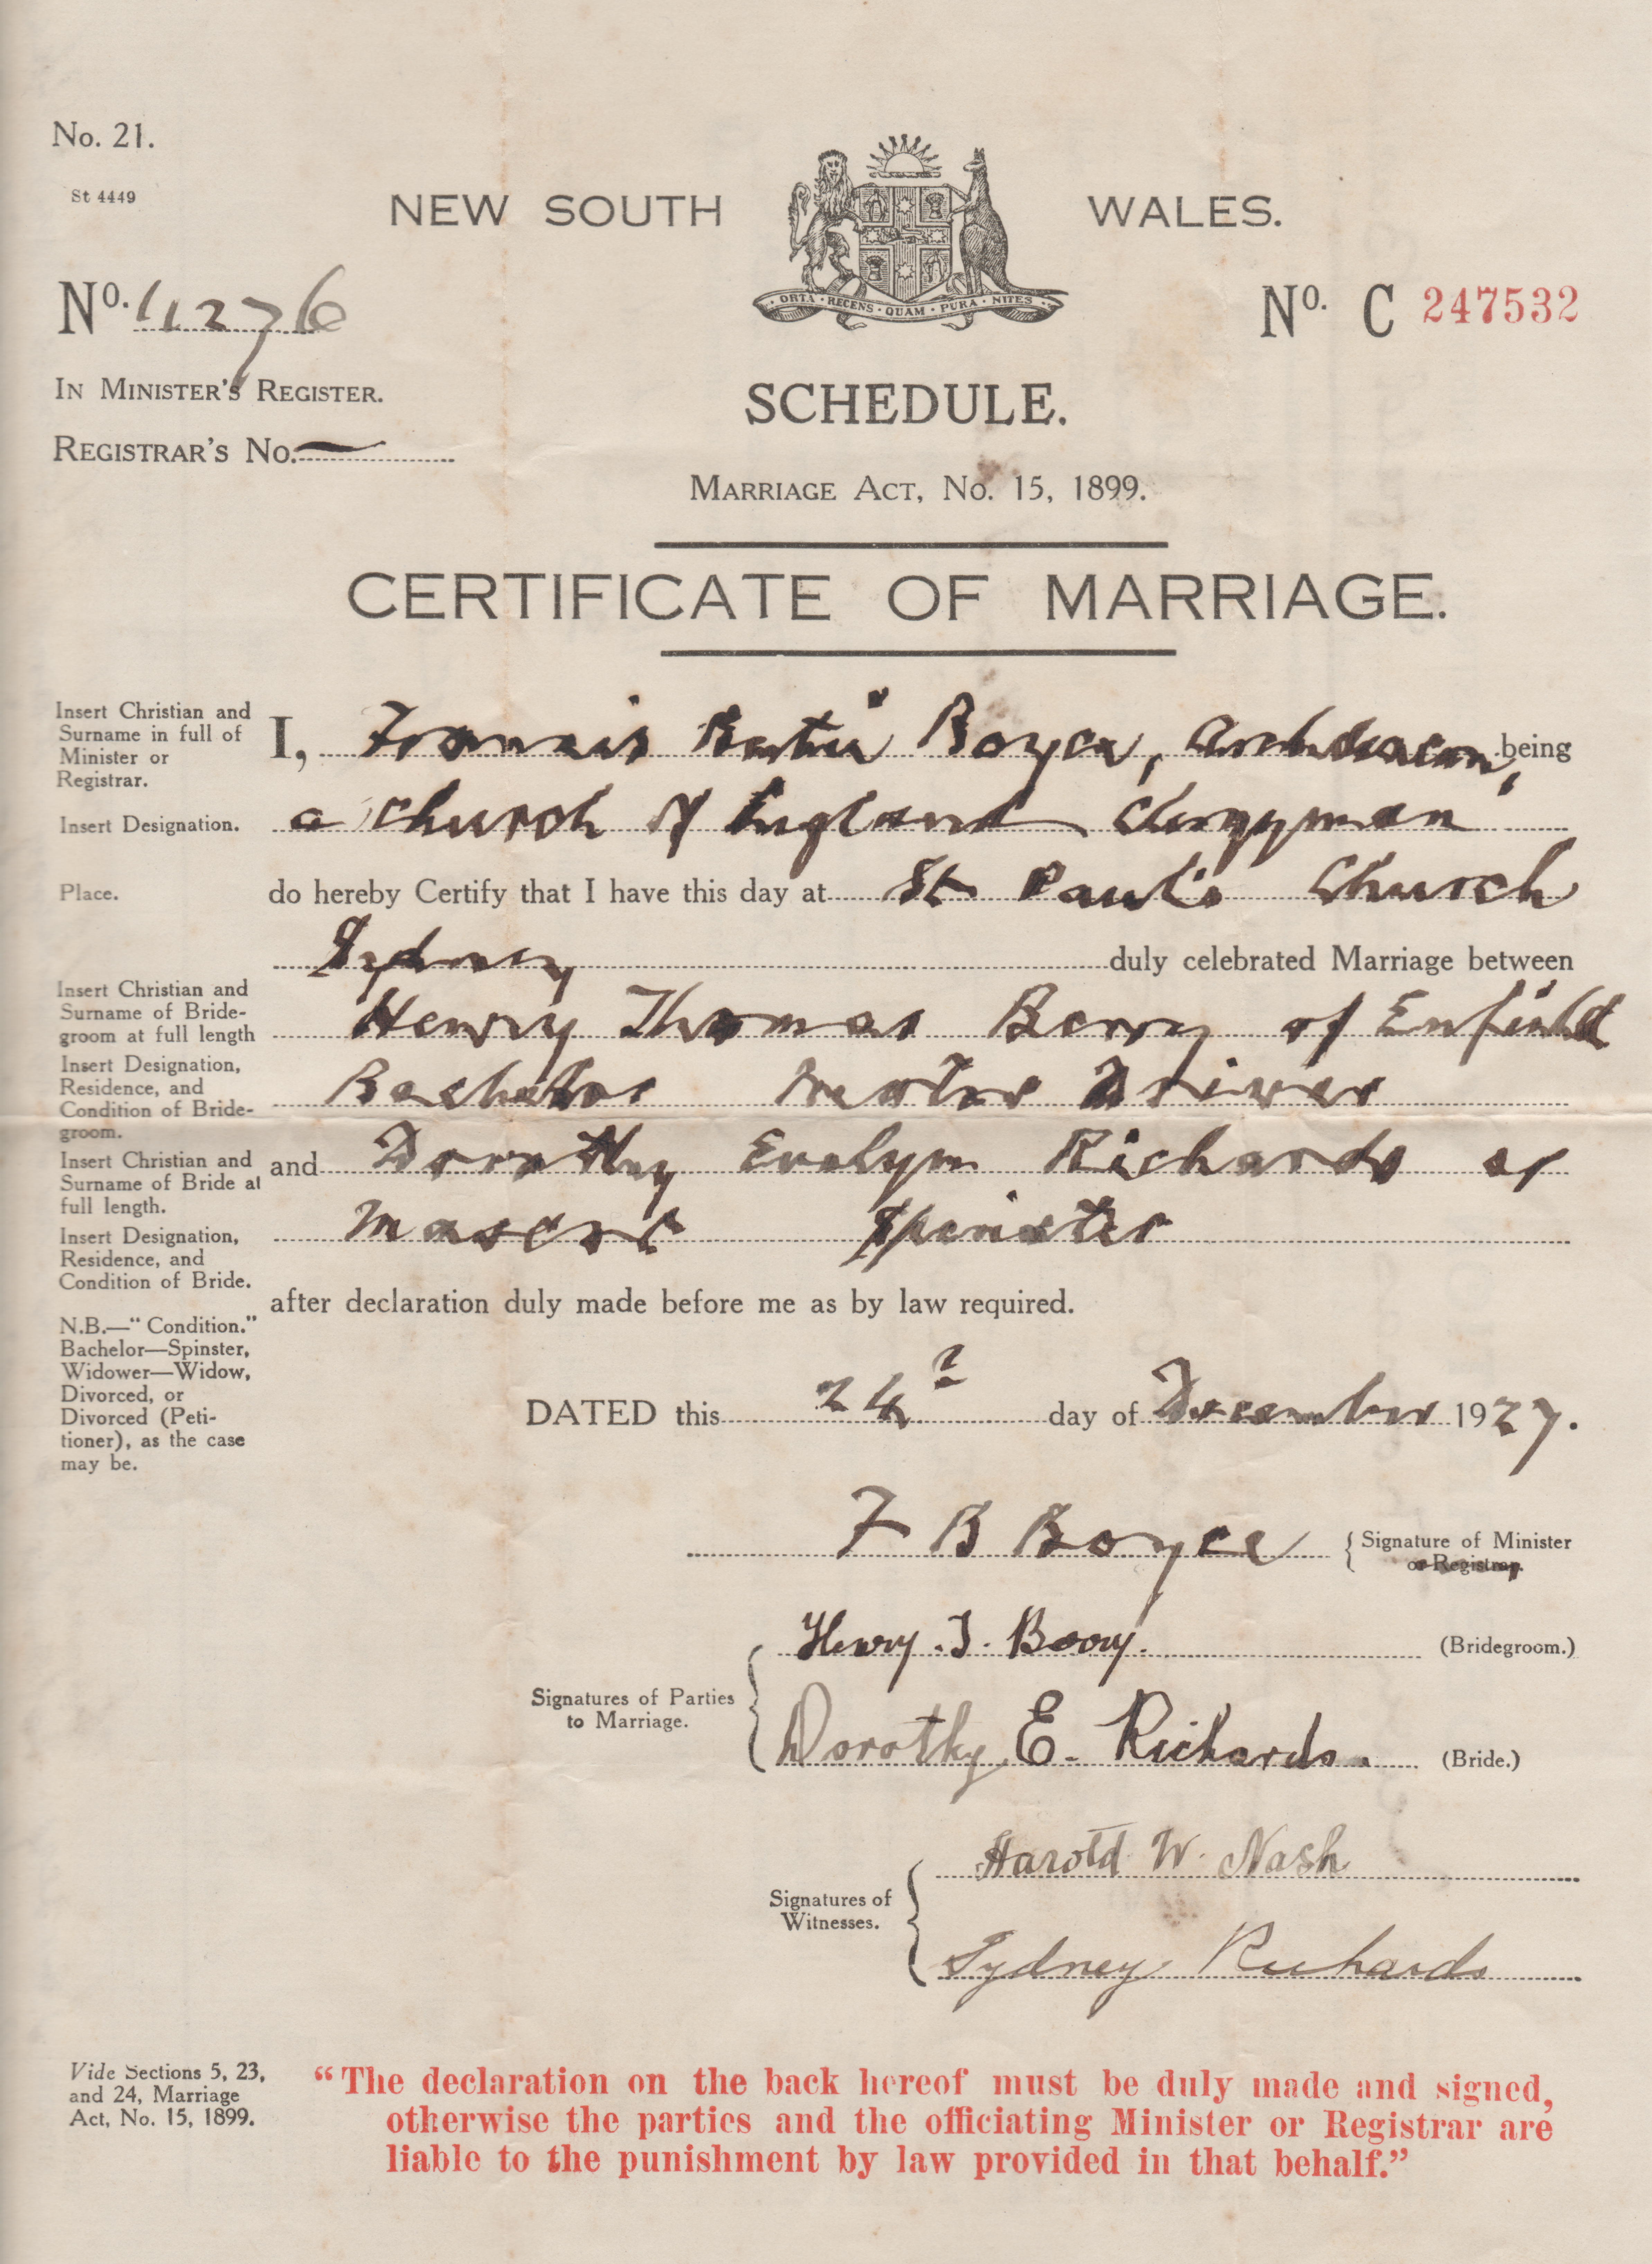 No. 21.
St 4449
NEW SOUTH WALES.
ORTA · RECENS · QUAM · PURA · NITES
No. 11276
No. C 247532
IN MINISTER'S REGISTER.
SCHEDULE.
REGISTRAR'S No.
MARRIAGE ACT, No. 15, 1899.
CERTIFICATE OF MARRIAGE.
Insert Christian and
Surname in full of
Minister or
Registrar.
I, Francis Bertie Boyce, Archdeacon, being
Insert Designation.
a Church of England Clergyman
Place.
do hereby Certify that I have this day at St Paul's Church
Sydney duly celebrated Marriage between
Insert Christian and
Surname of Bride-
groom at full length
Henry Thomas Berry of Enfield
Insert Designation,
Residence, and
Condition of Bride-
groom.
Bachelor Motor Driver
Insert Christian and
Surname of Bride at
full length.
and Dorothy Evelyn Richards of
Insert Designation,
Residence, and
Condition of Bride.
Mascot Spinster
after declaration duly made before me as by law required.
N.B.—" Condition."
Bachelor—Spinster,
Widower—Widow,
Divorced, or
Divorced (Peti-
tioner), as the case
may be.
DATED this 24 day of December 1927.
F B Boyce
Signature of Minister
or Registrar.
Signatures of Parties
to Marriage.
Henry. T. Berry. (Bridegroom.)
Dorothy E. Richards. (Bride.)
Signatures of
Witnesses.
Harold W. Nash
Sydney Richards
Vide Sections 5, 23,
and 24, Marriage
Act, No. 15, 1899.
"The declaration on the back hereof must be duly made and signed,
otherwise the parties and the officiating Minister or Registrar are
liable to the punishment by law provided in that behalf."